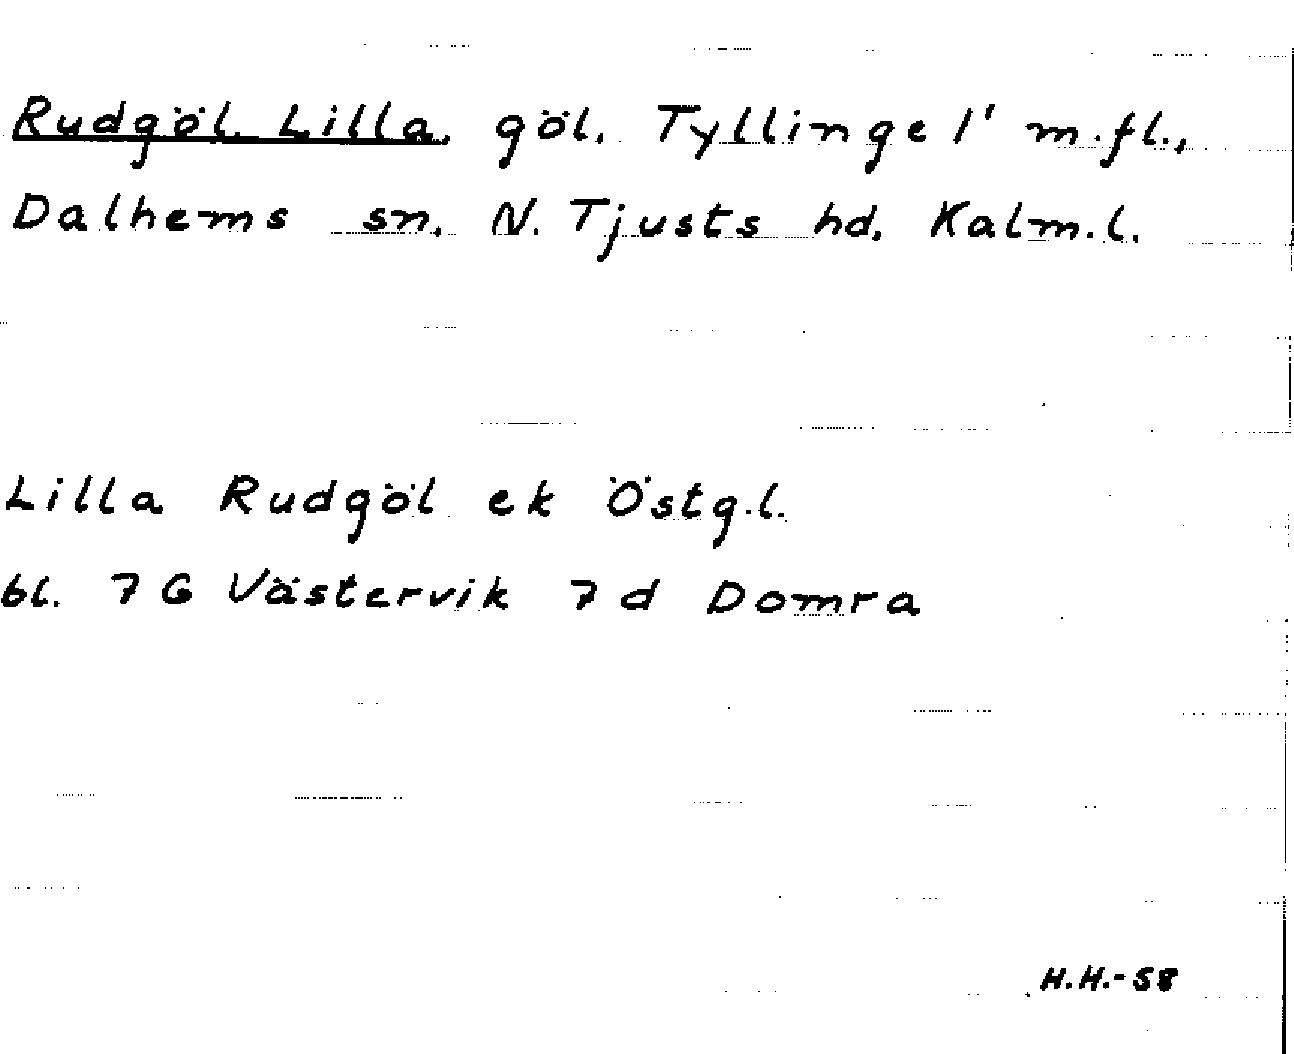 Rudgöl, Lilla, göl. Tyllinge 1' m.fl.,
Dalhems sn. N. Tjusts hd. Kalm.l.
Lilla Rudgöl ek Östg.l.
bl. 7 G Västervik 7 d Domra
H.H.-58